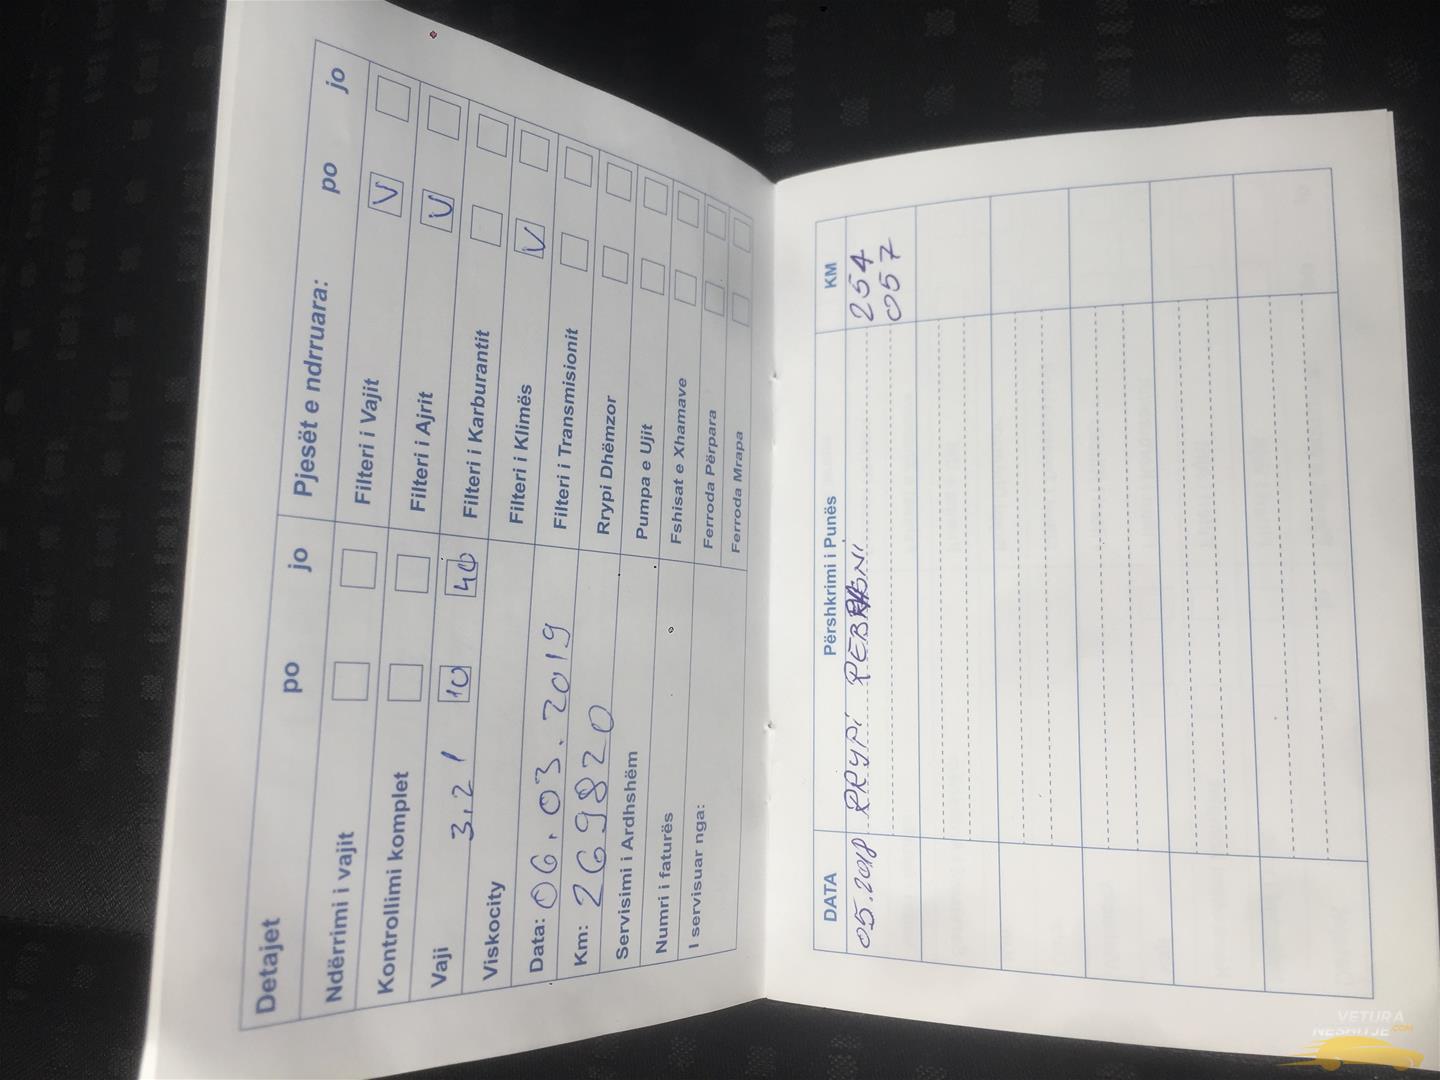 Detajet
po
jo
Pjesët e ndrruara:
po
jo
Ndërrimi i vajit
Filteri i Vajit
V
Kontrollimi komplet
Filteri i Ajrit
V
Vaji
3,2 l
10
40
Filteri i Karburantit
Viskocity
Filteri i Klimës
V
Data: 06.03.2019
Filteri i Transmisionit
Km: 269820
Rrypi Dhëmzor
Servisimi i Ardhshëm
Pumpa e Ujit
Numri i faturës
Fshisat e Xhamave
I servisuar nga:
Ferroda Përpara
Ferroda Mrapa
DATA
Përshkrimi i Punës
KM
05.2018
RRYPI
254
057
VETURA
NESHITJE.COM